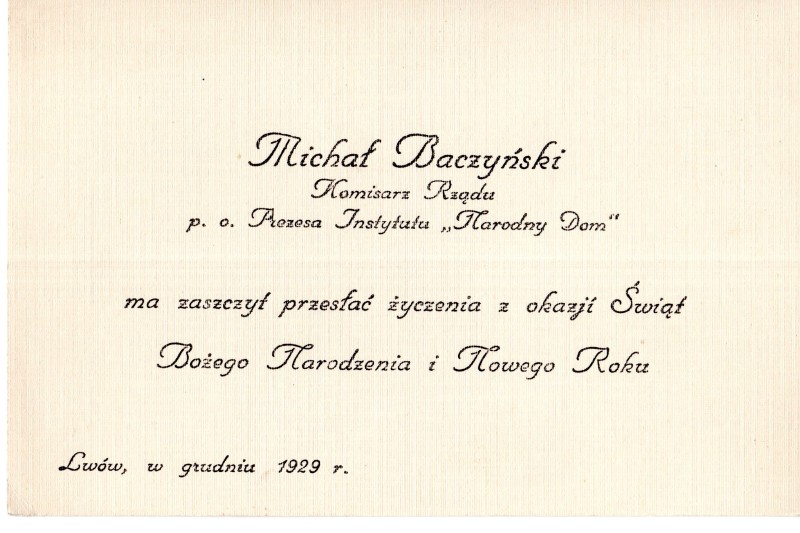 Michał Baczyński
Komisarz Rządu
p. o. Prezesa Instytutu „Narodny Dom"
ma zaszczyt przesłać życzenia z okazji Świąt
Bożego Narodzenia i Nowego Roku
Lwów, w grudniu 1929 r.